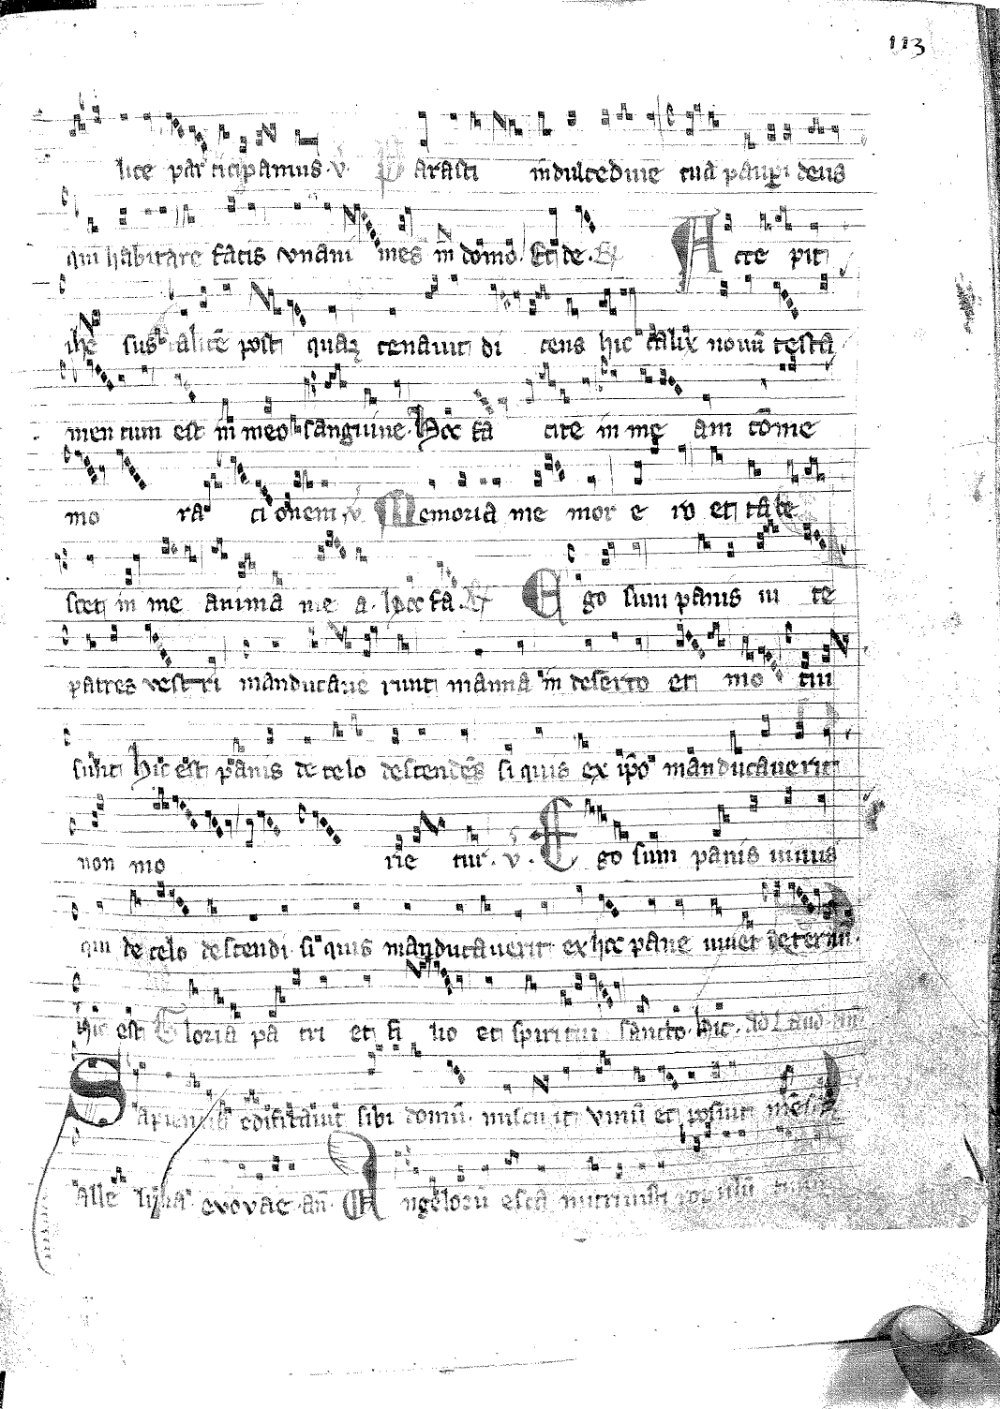 113
lice par ticipamus. v. Parasti in dulcedine tua paupi deus
qui habitare facis vnani mes in domo. Et de. Accepit
ihe sus calice post quaz cenavit di cens hic calix novu testa
men tum est in meo sanguine. Hoc fa cite in me am come
mo ra ti onem. v. Memoria me mor e ro et tabe
scet in me anima me a. hoc fa. Ego sum panis vi te
patres vestri manducave runt manna in deserto et mo tui
sunt hic est panis de celo descendes si quis ex ipo manducaverit
non mo rie tur. v. Ego sum panis vivus
qui de celo descendi. si quis manducaverit ex hoc pane vivet
hic est Gloria pa tri et fi lio et spiritui sancto. hic. ad Laud. an
Sapiencia edificavit sibi domu. miscu it vinu et posuit mesa
alle luya evovae. an. Angeloru esca nutrivisti populu